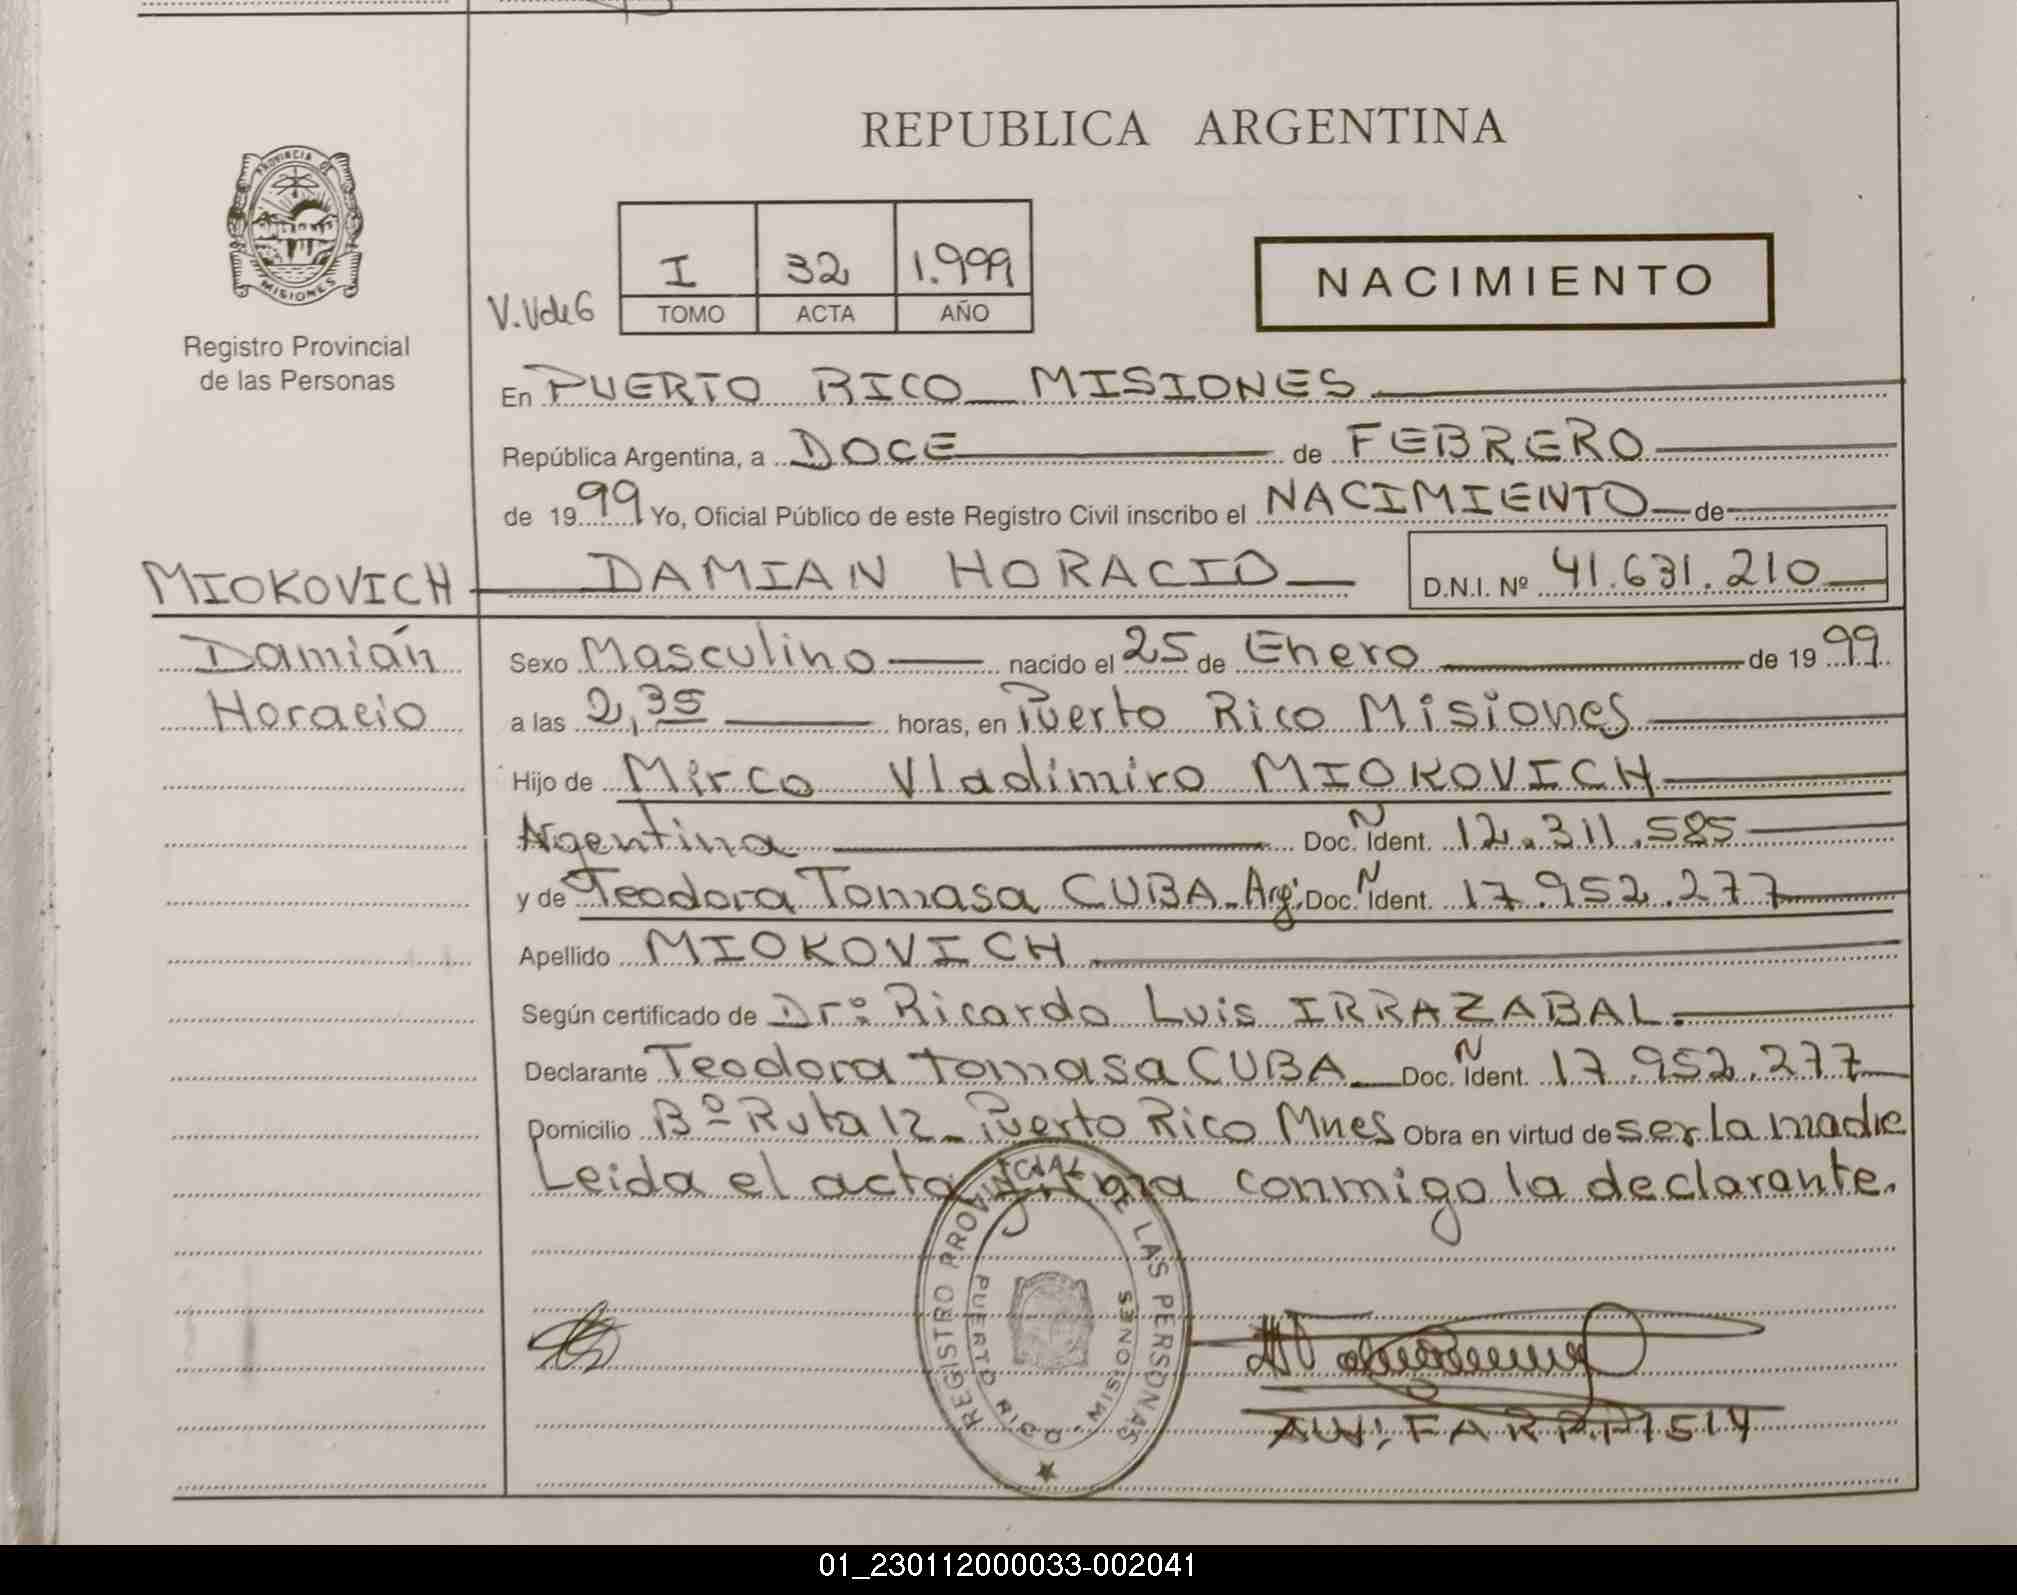 REPUBLICA ARGENTINA
PROVINCIA DE
MISIONES
Registro Provincial
de las Personas
I 32 1.999
V.VdeG TOMO ACTA AÑO
NACIMIENTO
En PUERTO RICO _ MISIONES
República Argentina, a DOCE de FEBRERO
de 1999 Yo, Oficial Público de este Registro Civil inscribo el NACIMIENTO de
MIOKOVICH DAMIAN HORACIO D.N.I. Nº 41.631.210
Damián
Horacio
Sexo Masculino nacido el 25 de Enero de 1999
a las 2,35 horas, en Puerto Rico Misiones
Hijo de Mirco Vladimiro MIOKOVICH
Argentina Doc. Ñ Ident. 12.311.585
y de Teodora Tomasa CUBA - Arg. Doc. Ñ Ident. 17.952.277
Apellido MIOKOVICH
Según certificado de Dr: Ricardo Luis IRRAZABAL.
Declarante Teodora Tomasa CUBA Doc. Ñ Ident. 17.952.277
Domicilio Bº Ruta 12 - Puerto Rico Mnes Obra en virtud de ser la madre
Leida el acta firma conmigo la declarante.
REGISTRO PROVINCIAL DE LAS PERSONAS
PUERTO RICO - MISIONES
01_230112000033-002041